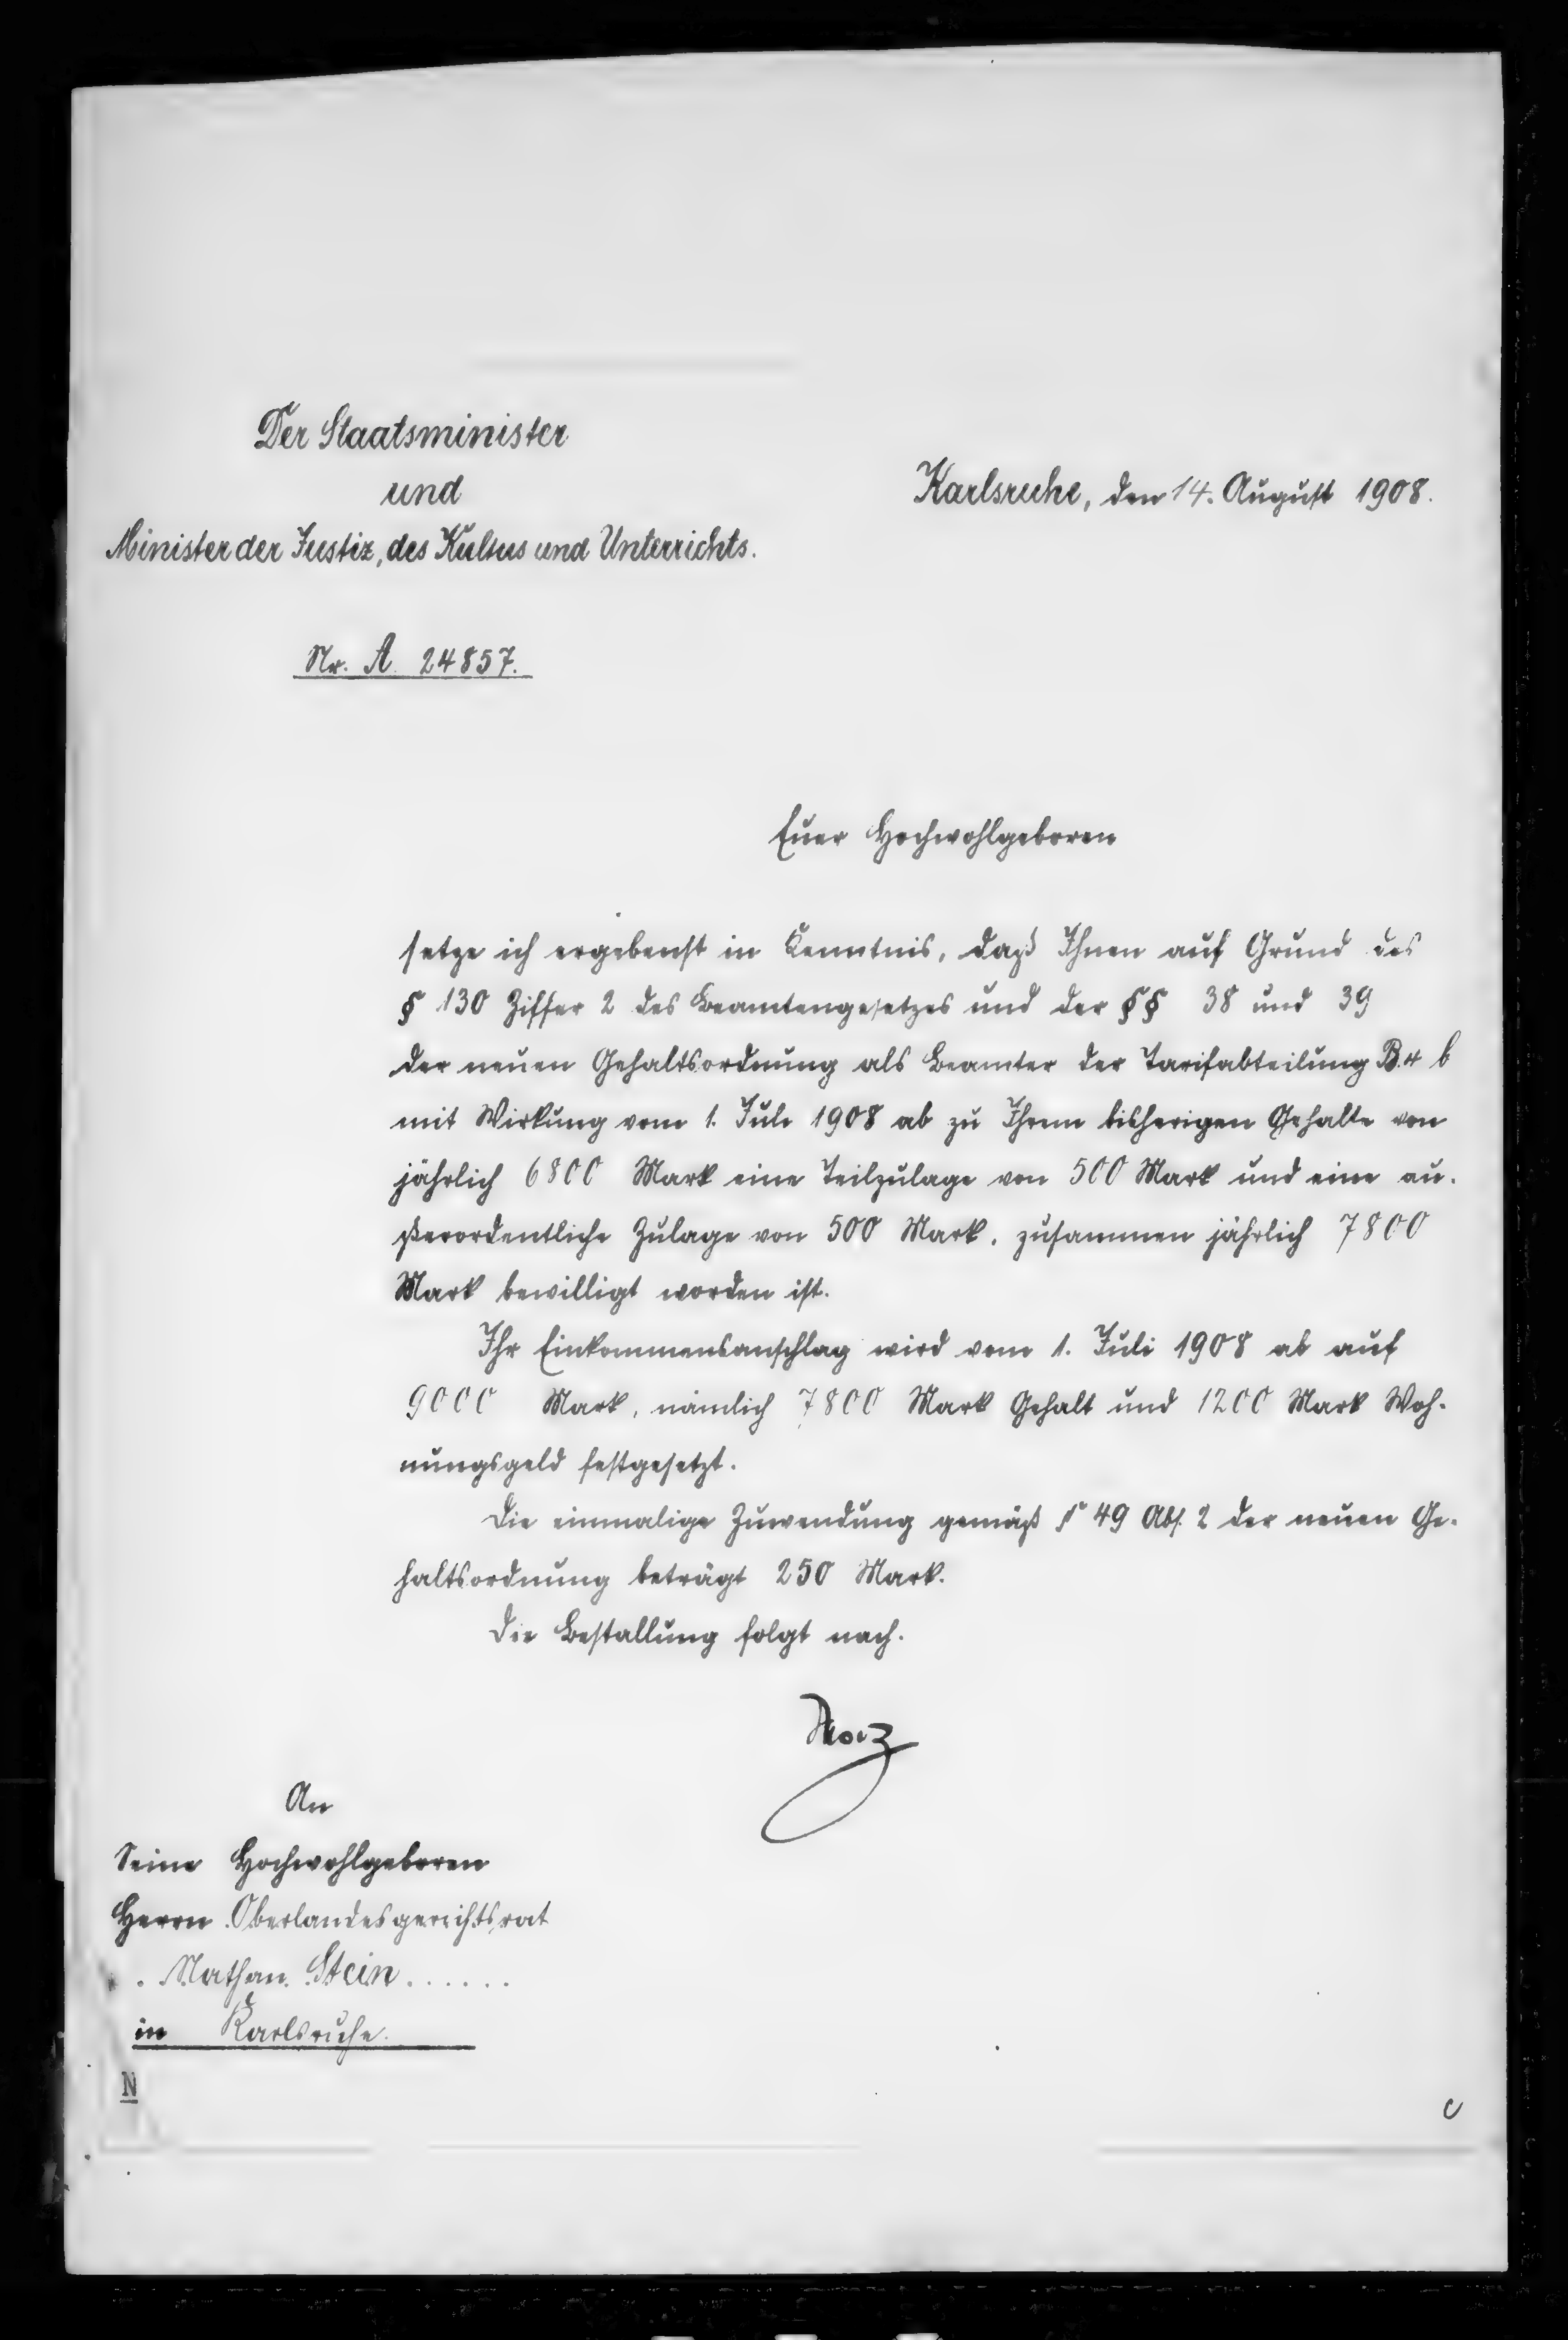 Der Staatsminister
und
Minister der Justiz, des Kultus und Unterrichts.
Karlsruhe, den 14. August 1908.
Nr. A. 24857.
Euer Hochwohlgeboren
setze ich ergebenst in Kenntnis, daß Ihnen auf Grund des
§ 130 Ziffer 2 des Beamtengesetzes und der §§ 38 und 39
der neuen Gehaltsordnung als Beamter der Tarifabteilung B.4 b
mit Wirkung vom 1. Juli 1908 ab zu Ihrem bisherigen Gehalte von
jährlich 6800 Mark eine Teilzulage von 500 Mark und eine au-
ßerordentliche Zulage von 500 Mark, zusammen jährlich 7800
Mark bewilligt worden ist.
Ihr Einkommensanschlag wird vom 1. Juli 1908 ab auf
9000 Mark, nämlich 7800 Mark Gehalt und 1200 Mark Woh-
nungsgeld festgesetzt.
Die einmalige Zuwendung gemäß § 49 Abs. 2 der neuen Ge-
haltsordnung beträgt 250 Mark.
Die Bestallung folgt nach.
An
Seine Hochwohlgeboren
Herrn Oberlandesgerichtsrat
Nathan Stein......
in Karlsruhe.
N